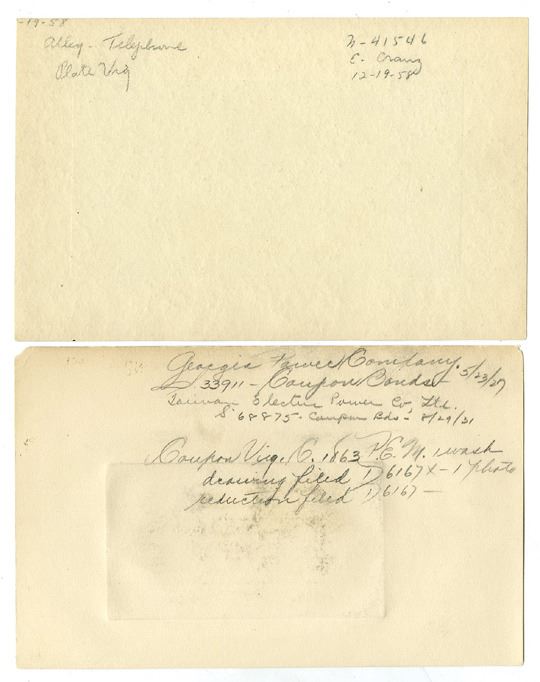 -19-58
Alleg - Telephone
Plate Vig
N-41546
E. Cranz
12-19-58
Georgia Power Company. 5/23/27
33911 - Coupon Bonds
Taiwan Electric Power Co, Ltd.
S. 68875 - Coupon Bds - 8/29/31
Coupon Vig. C. 1863 P.E.M. 1 wash
drawing filed D6167X - 1 photo
reduction filed D6167 -